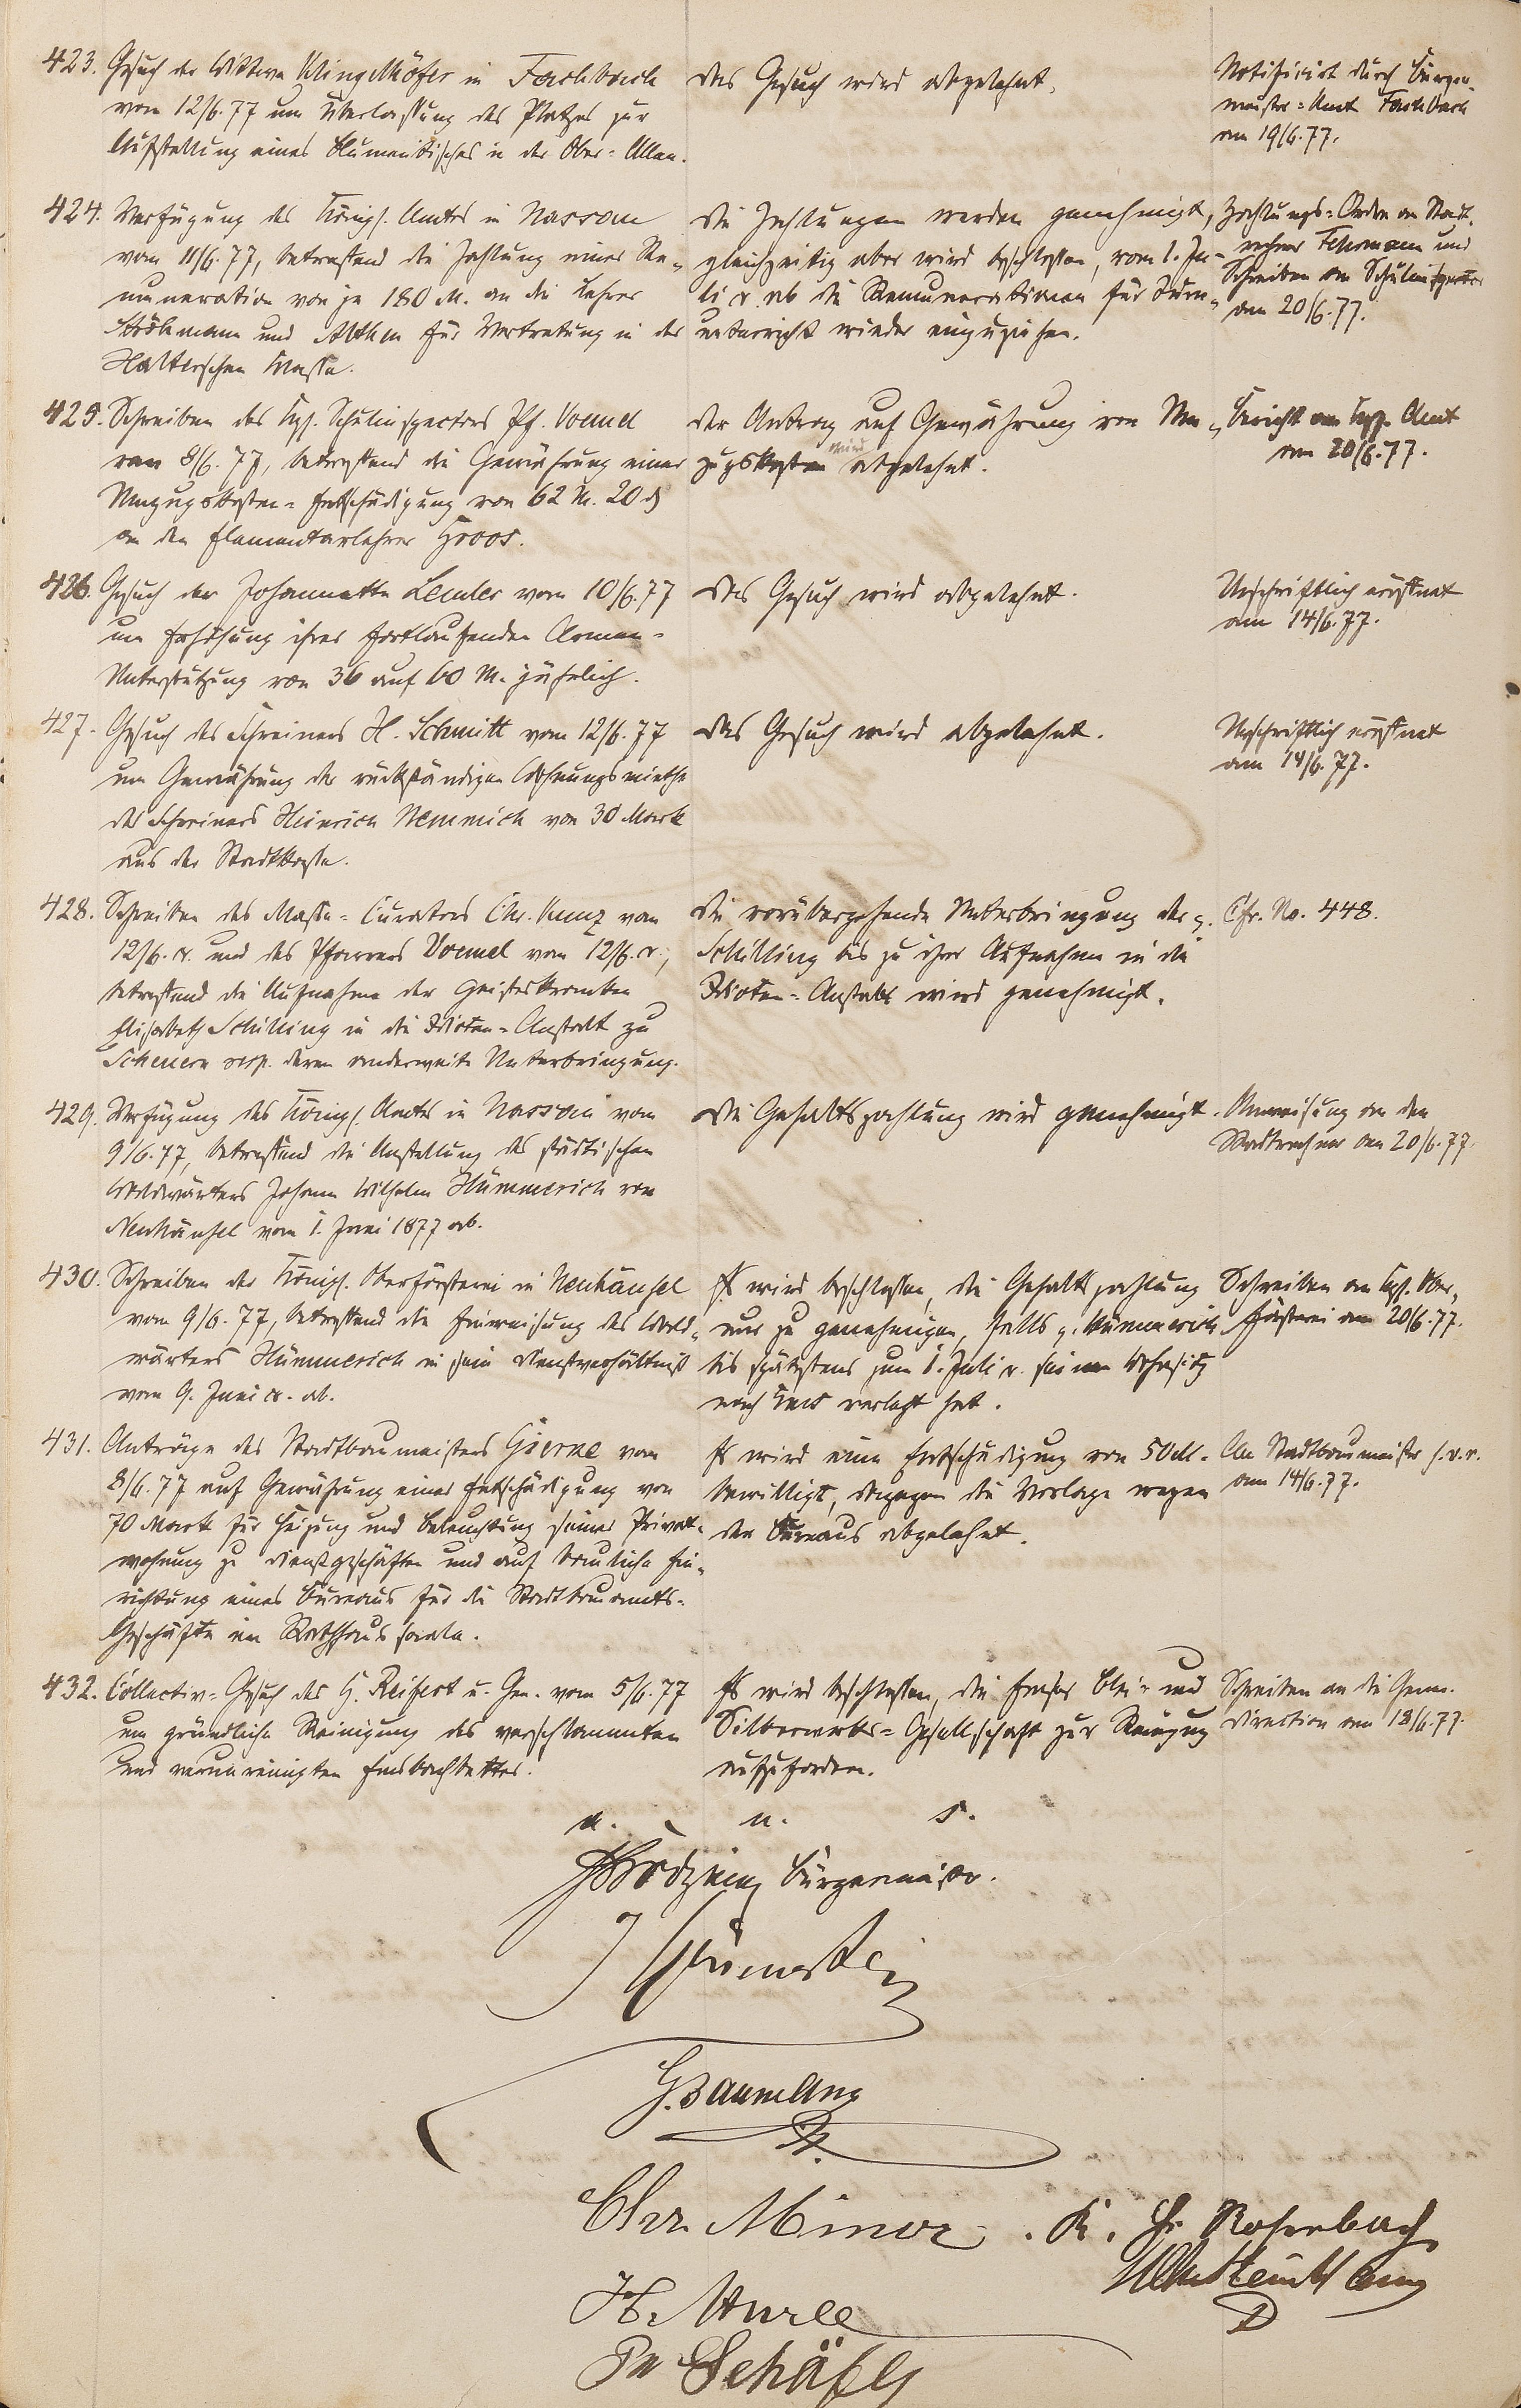 423. Gesuch der Wittwe Klingelhöfer in Fachbach
vom 12/6. 77 um Überlassung des Platzes zur
Aufstellung eines Blumentisches in der Ober-Allee.
Das Gesuch wird abgelehnt.
Notificirt durch Bürger-
meister-Amt Fachbach
am 19/6. 77.
424. Verfügung des Königl. Amtes in Nassau
vom 11/6. 77, betreffend die Zahlung einer Re-
muneration von je 180 M. an die Lehrer
Ströhmann und für Vertretung in der
Halterschen Klasse.
Die Zahlungen werden genehmigt,
gleichzeitig aber wird beschlossen, vom 1. Ju-
li cr. ab die Remunerationen für Turn-
unterricht wieder einzuziehen.
Zahlungs-Ordre an Stadt-
rechner Fehrmann und
Schreiben an Schulinspector
am 20/6. 77.
425. Schreiben des Kgl. Schulinspectors Pf. Voemel
vom 8/6. 77, betreffend die Gewährung einer
Umzugskosten-Entschädigung von 62 M. 20 ₰
an den Elementarlehrer Groos.
Der Antrag auf Gewährung von Um-
zugskosten wird abgelehnt.
Bericht an Kgl. Amt
am 20/6. 77.
426. Gesuch der Johannette Lemler vom 10/6. 77
um Erhöhung ihrer fortlaufenden Armen-
Unterstützung von 36 auf 60 M. jährlich.
Das Gesuch wird abgelehnt.
Urschriftlich eröffnet
am 14/6. 77.
427. Gesuch des Schreiners H. Schmitt vom 12/6. 77
um Gewährung der rückständigen Wohnungsmiethe
des Schreiners Heinrich Nemmich von 30 Mark
aus der Stadtkasse.
Das Gesuch wird abgelehnt.
Urschriftlich eröffnet
am 14/6. 77.
428. Schreiben des Masse-Curators Chr. Kunz vom
12/6. cr. und des Pfarrers Voemel vom 12/6. cr.,
betreffend die Aufnahme der Geisteskranken
Elisabeth Schilling in die Idioten-Anstalt zu
Scheuern resp. deren anderweite Unterbringung.
Die vorübergehende Unterbringung der g.
Schilling bis zu ihrer Aufnahme in die
Idioten-Anstalt wird genehmigt.
Cfr. No. 448.
429. Verfügung des Königl. Amtes in Nassau vom
9/6. 77, betreffend die Anstellung des städtischen
Waldwärters Johann Wilhelm Hümmerich von
Neuhäusel vom 1. Juni 1877 ab.
Die Gehaltszahlung wird genehmigt.
Anweisung an den
Stadtrechner am 20/6. 77.
430. Schreiben der Königl. Oberförsterei in Neuhäusel
vom 9/6. 77, betreffend die Einweisung des Wald-
wärters Hümmerich in sein Dienstverhältniß
vom 9. Juni cr. ab.
Es wird beschlossen, die Gehaltszahlung
nur zu genehmigen, falls g. Hümmerich
bis spätestens zum 1. Juli cr. seinen Wohnsitz
nach Ems verlegt hat.
Schreiben an Kgl. Ober-
försterei am 20/6. 77.
431. Anträge des Stadtbaumeisters Gierne vom
8/6. 77 auf Gewährung einer Entschädigung von
70 Mark für Heizung und Beleuchtung seiner Privat-
wohnung zu Dienstgeschäften und auf bauliche Ein-
richtung eines Bureaus für die Stadtbauamts-
Geschäfte im Rathhaussaale.
Es wird eine Entschädigung von 50 M.
bewilligt, dagegen die Vorlage wegen
des Bureaus abgelehnt.
An Stadtbaumeister s. v. r.
am 14/6. 77.
432. Collectiv-Gesuch des H. Reifert u. Gen. vom 5/6. 77
um gründliche Reinigung des verschlammten
und verunreinigten Emsbachbettes.
Es wird beschlossen, die Emser Blei- und
Silberwerks-Gesellschaft zur Reinigung
aufzufordern.
Schreiben an die Gen.
Direction am 18/6. 77.
a. u. s.
Bürgermeister.
G. Baumann
Chr. Minor
K. H. Rosenbach
Schäfer